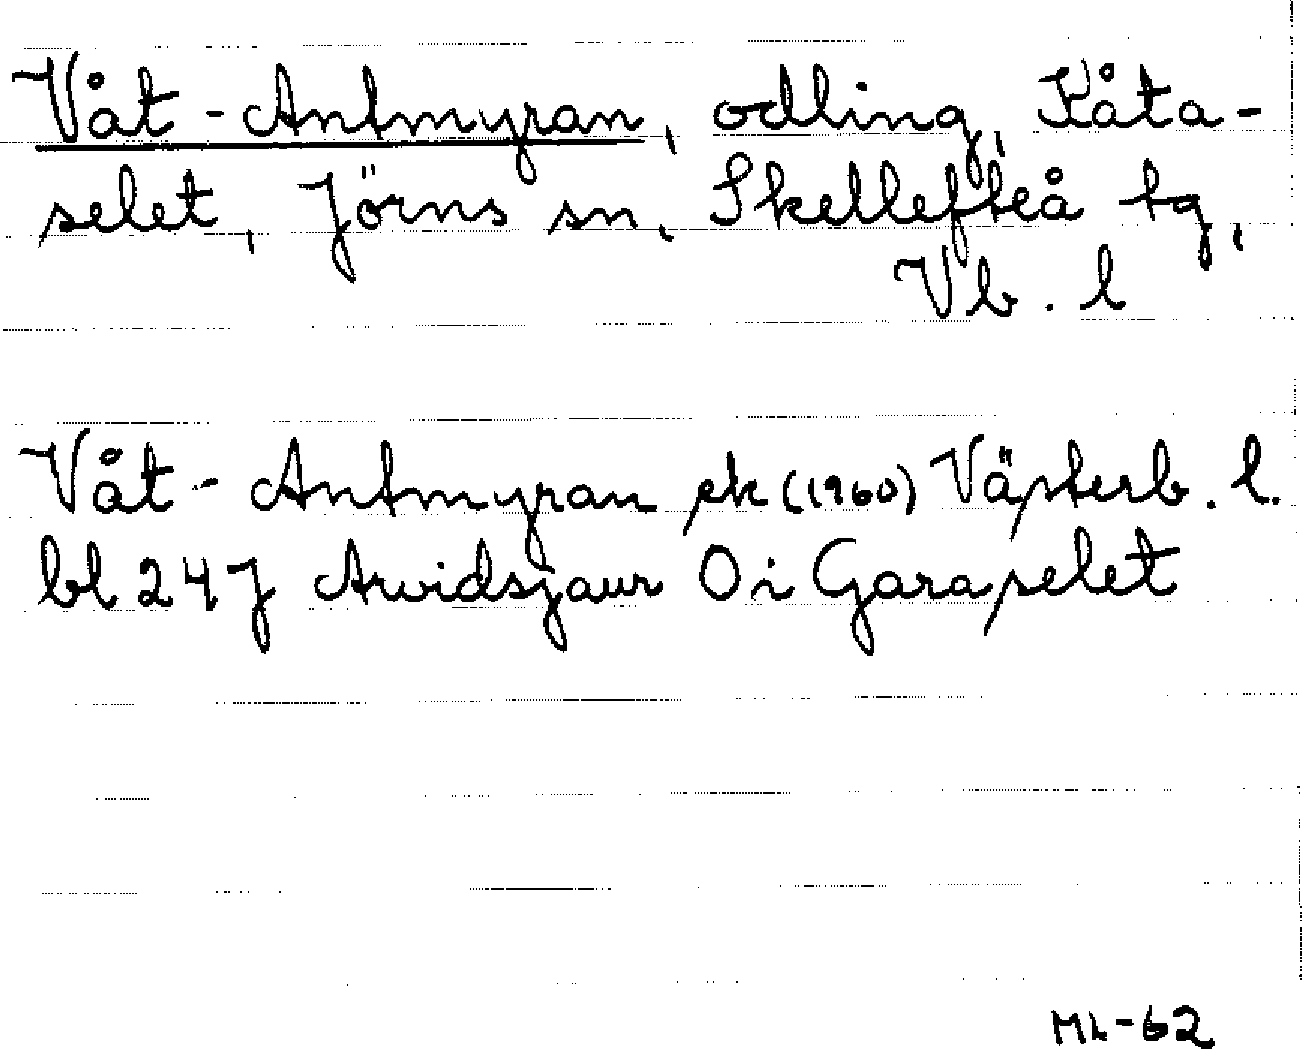 Våt-Antmyran, odling, Kåta-
selet, Jörns sn, Skellefteå tg,
Vb. l
Våt-Antmyran ek (1960) Västerb. l.
bl 24 J Arvidsjaur O i Garaselet
ML-62